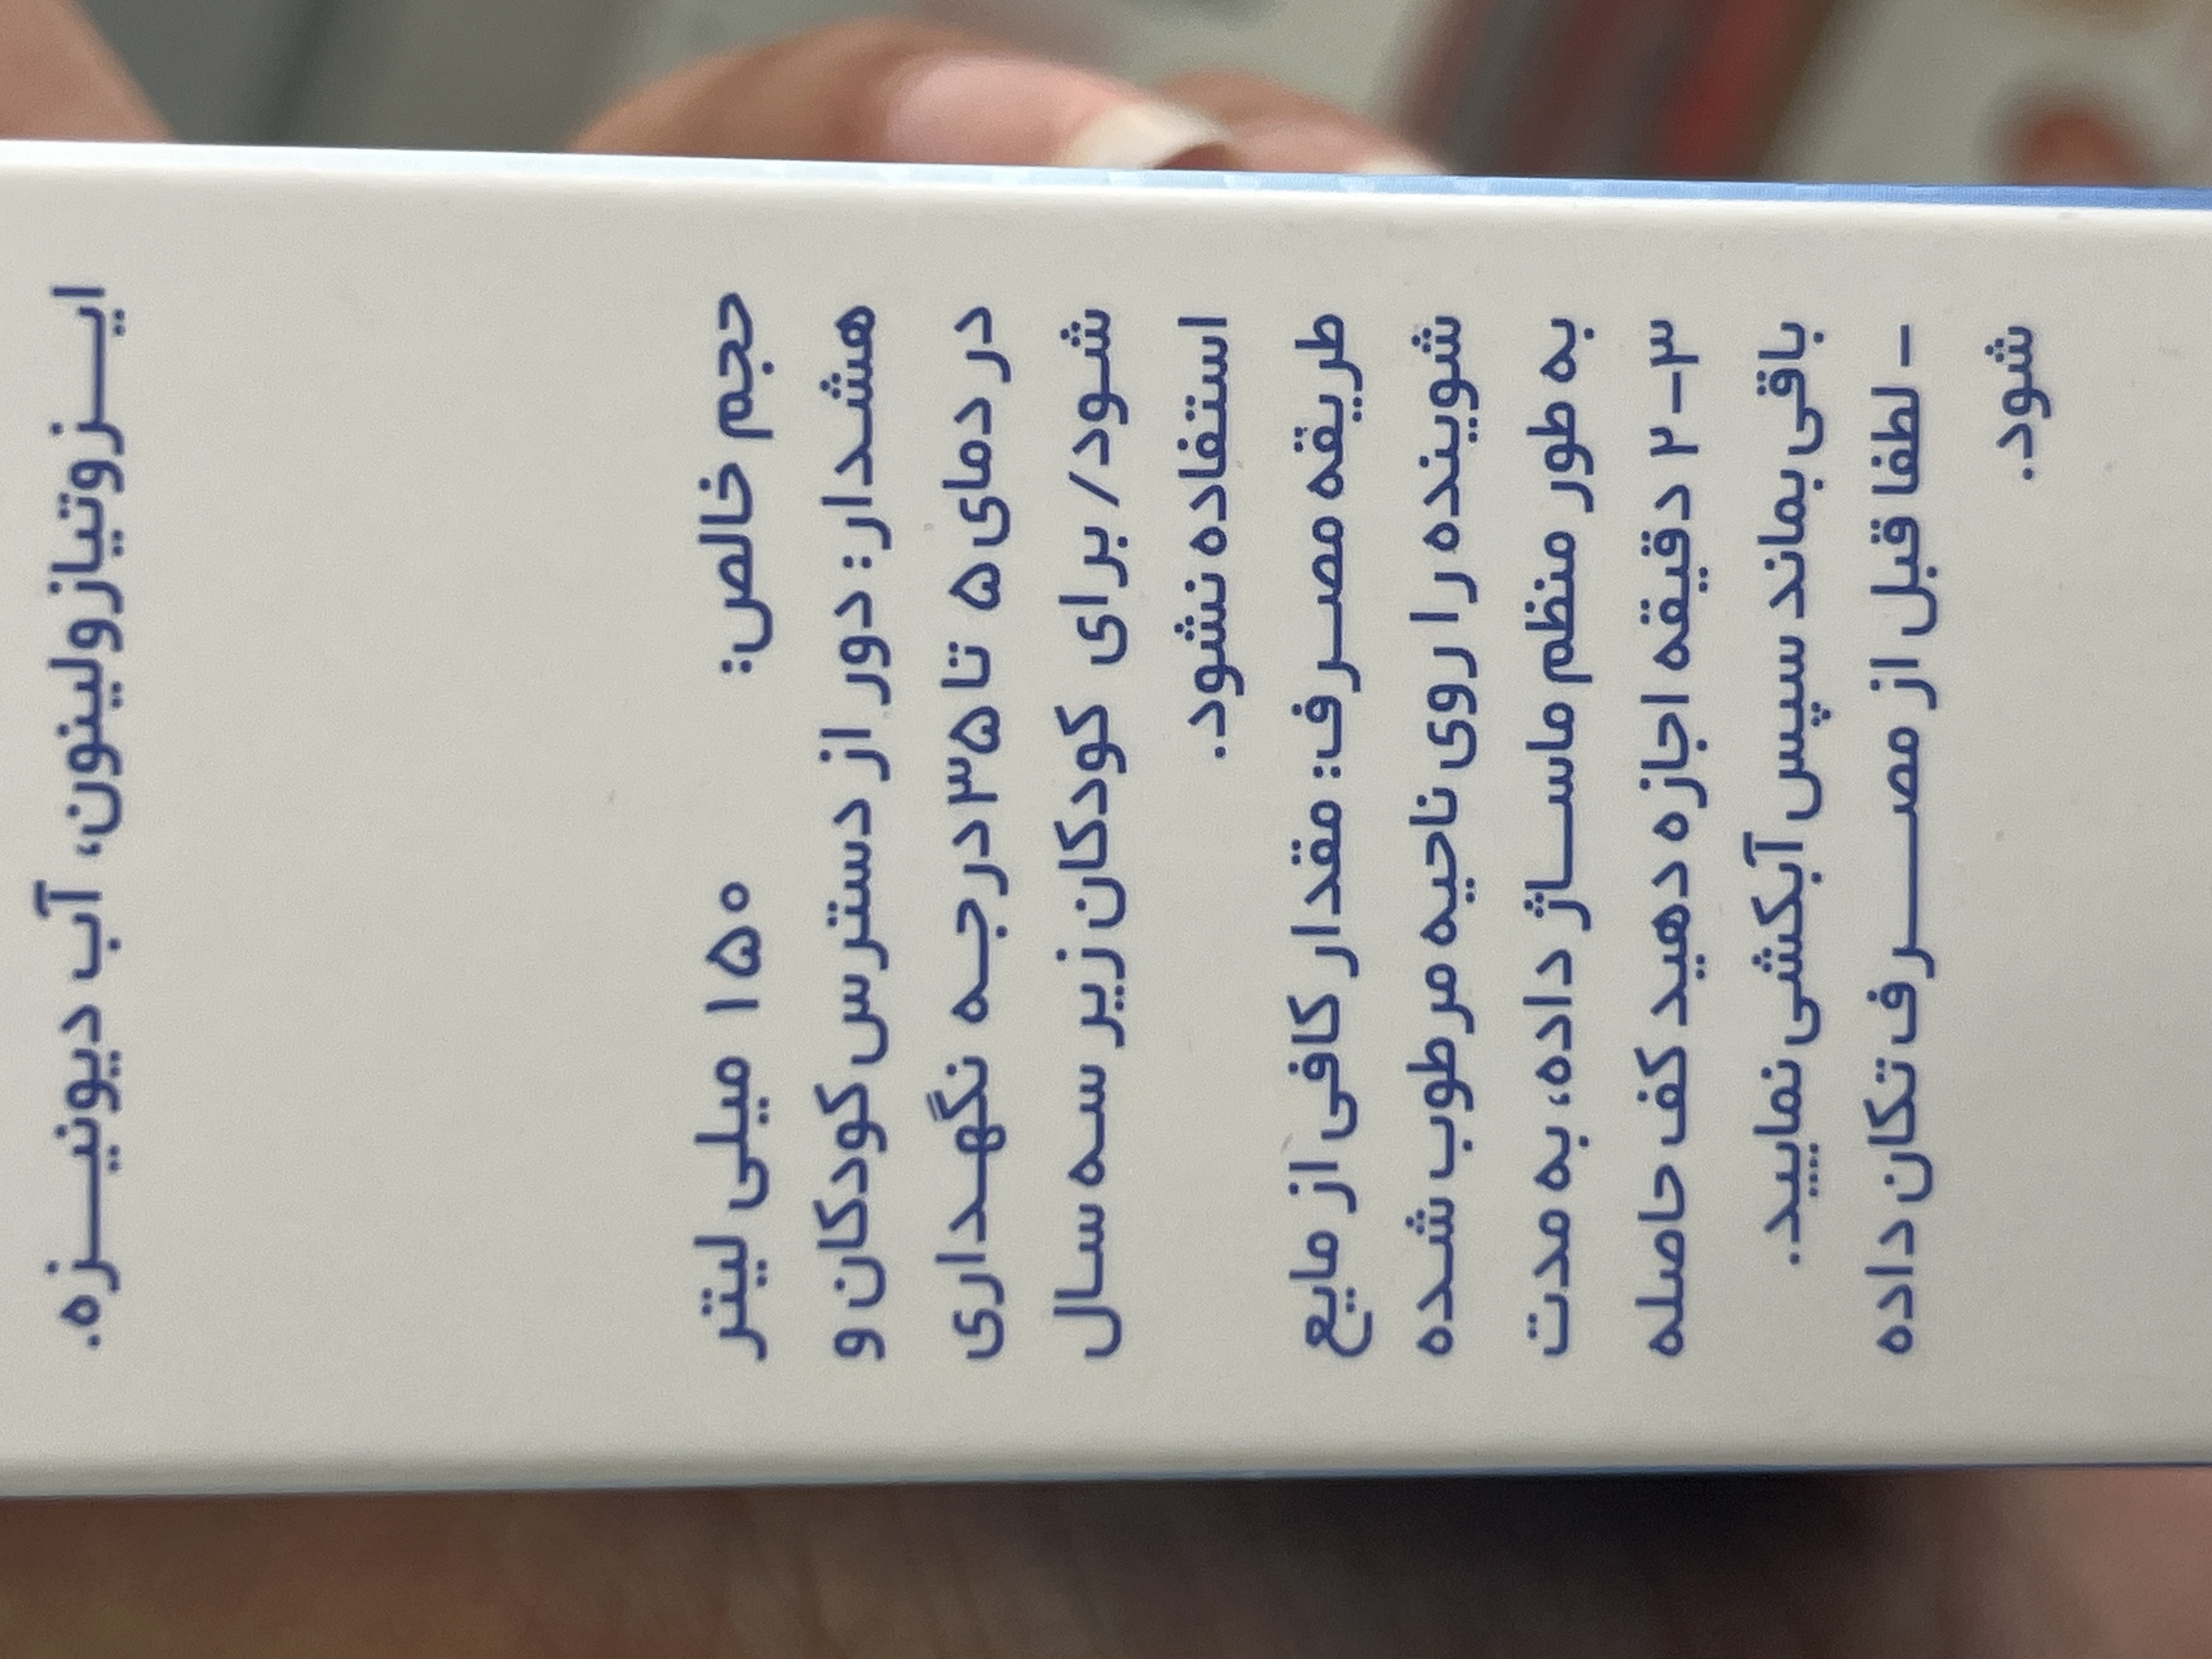 ایـــزوتیازولینون، آب دیونیـــزه.
حجم خالص: ۱۵۰ میلی لیتر
هشدار: دور از دسترس کودکان و
در دمای ۵ تا ۳۵ درجه نگهداری
شود/ برای کودکان زیر سه سال
استفاده نشود.
طریقه مصرف: مقدار کافی از مایع
شوینده را روی ناحیه مرطوب شده
به طور منظم ماساژ داده، به مدت
۲-۳ دقیقه اجازه دهید کف حاصله
باقی بماند سپس آبکشی نمایید.
- لطفا قبل از مصرف تکان داده
شود.